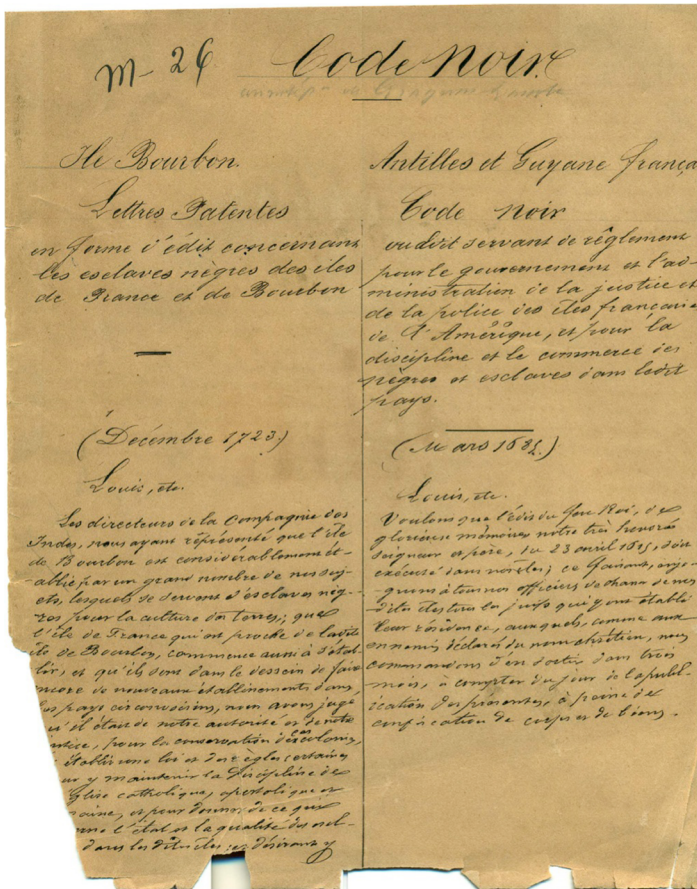 M- 26
Code Noir.
Ile Bourbon.
Lettres Patentes
en forme d'édit concernant
les esclaves nègres des îles
de France et de Bourbon
(Décembre 1723.)
Louis, etc.
Les directeurs de la Compagnie des
Indes, nous ayant réprésenté que l'île
de Bourbon est considérablement ét-
ablie par un grand nombre de nos suj-
ets, lesquels se servent d'esclaves nèg-
res pour la culture des terres; que
l'île de France qui est proche de ladite
île de Bourbon, commence aussi à s'étab-
lir, et qu'ils sont dans le dessein de faire
encore de nouveaux établissements dans
les pays circonvoisins, nous avons jugé
qu'il était de notre autorité et de notre
justice, pour la conservation des colonies,
établir une loi et des règles certaines
pour y maintenir la discipline de
Église catholique, apostolique et
romaine, et pour donner de ce que
l'état et la qualité des escl-
dans les dites îles; et désirant y
Antilles et Guyane frança
Code noir
ou édit servant de règlement
pour le gouvernement et l'ad-
ministration de la justice et
de la police des îles françaises
de l'Amérique, et pour la
discipline et le commerce des
nègres et esclaves dans ledit
pays.
(Mars 1685.)
Louis, etc.
Voulons que l'édit du feu Roi, de
glorieuse mémoire, notre très honoré
seigneur et père, du 23 avril 1615, soit
exécuté dans nos îles; ce faisant, enjo-
ignons à tous nos officiers de chasser de nos
dites îles tous les juifs qui y ont établi
leur résidence, auxquels, comme aux
ennemis déclarés du nom chrétien, nous
commandons d'en sortir dans trois
mois, à compter du jour de la publ-
ication des présentes, à peine de
confiscation de corps et de biens.